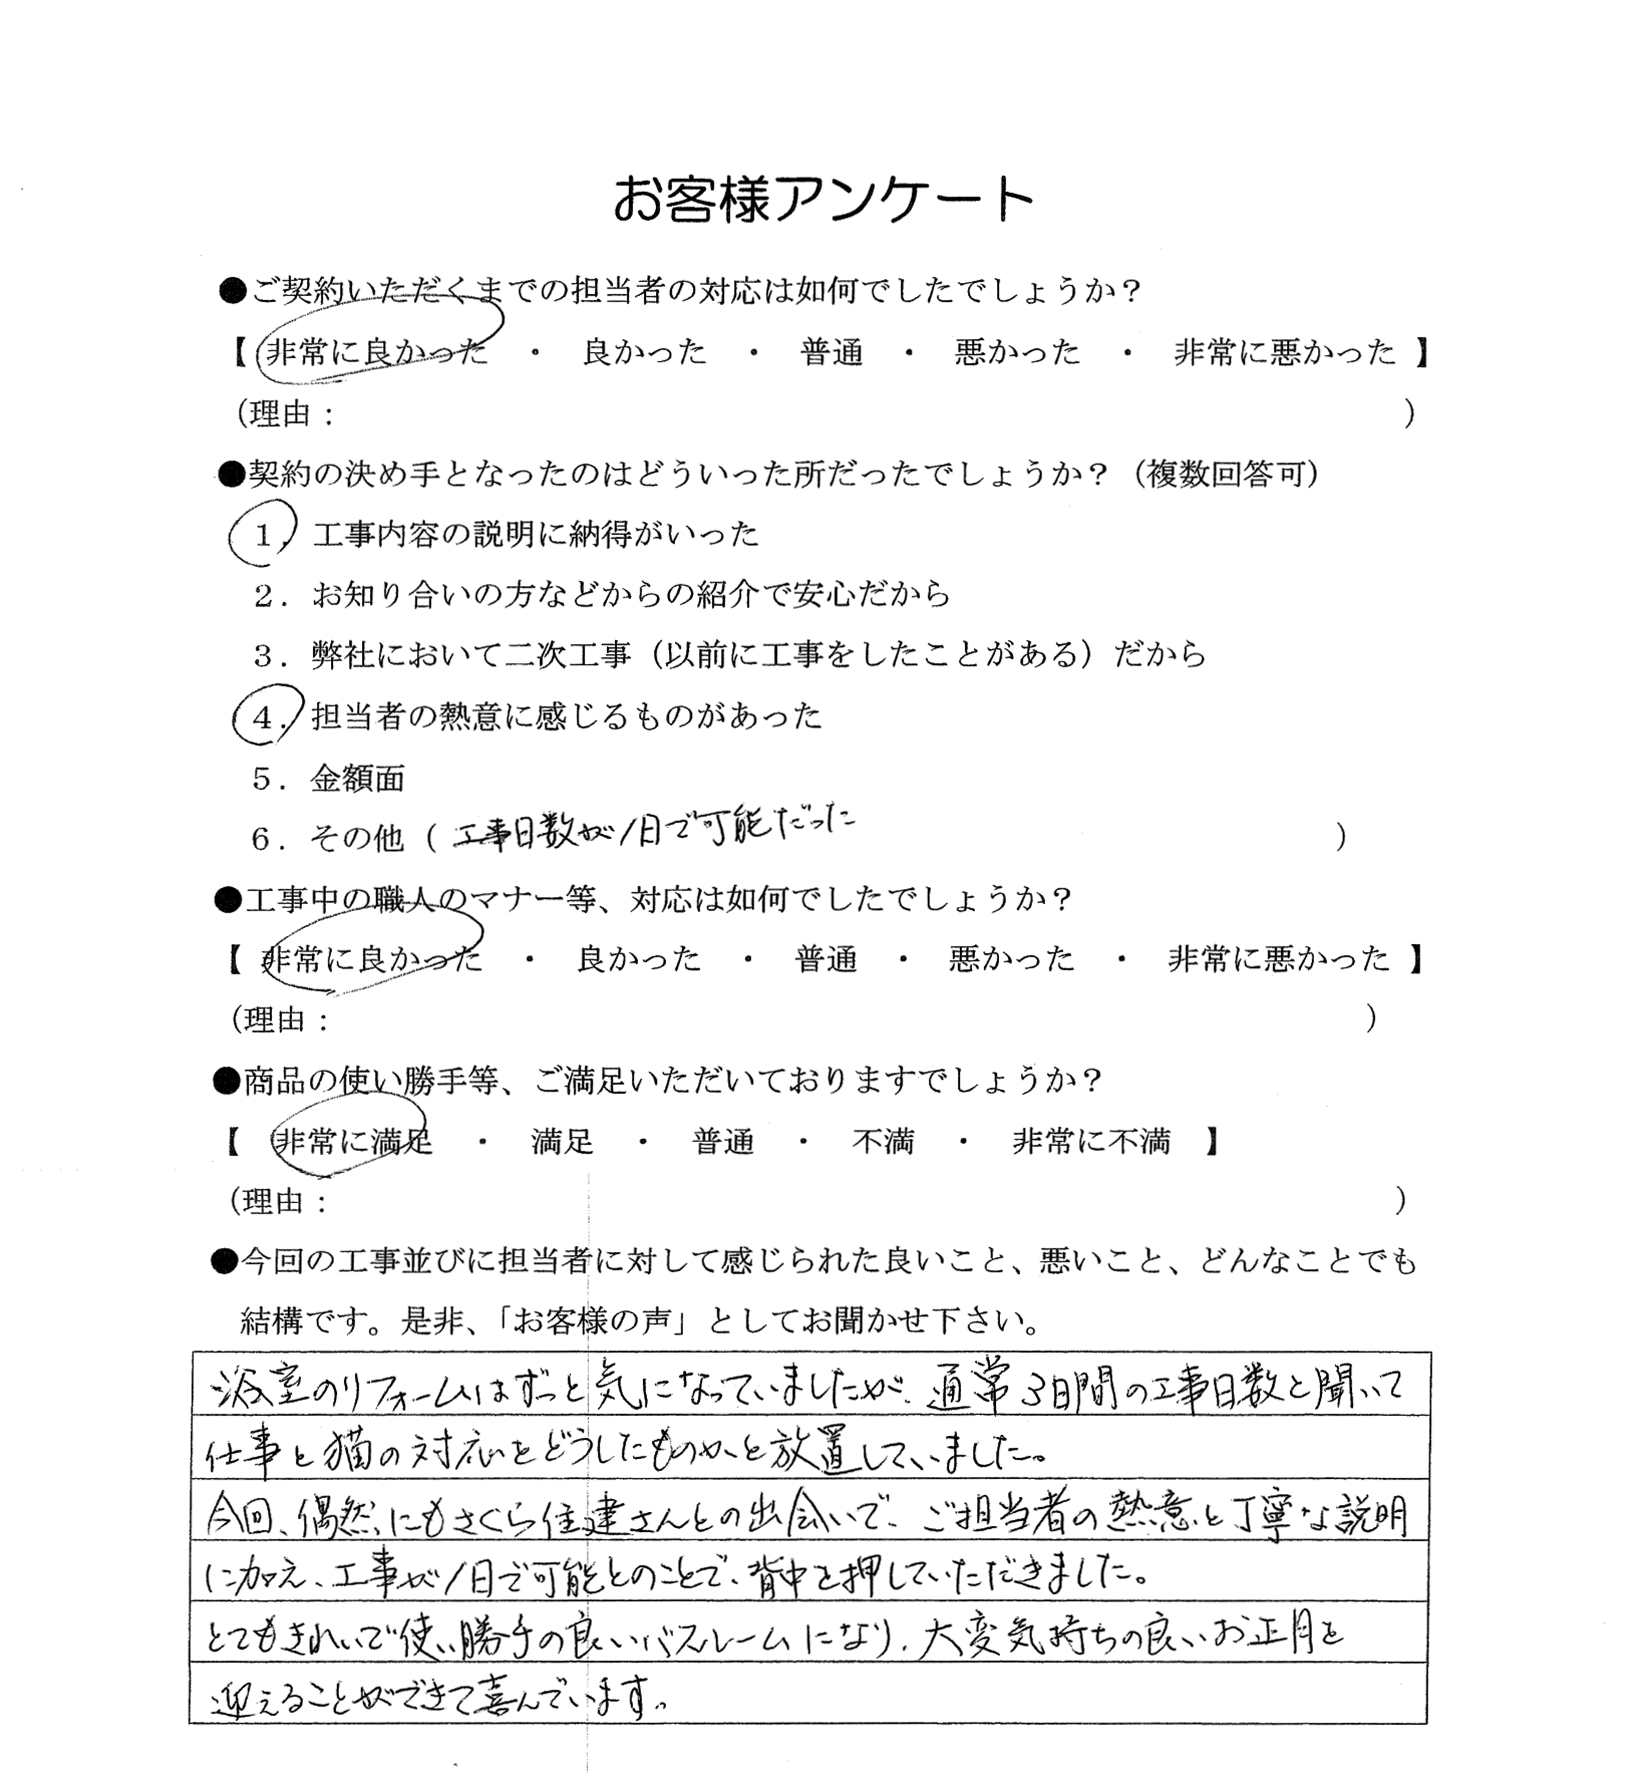 お客様アンケート
●ご契約いただくまでの担当者の対応は如何でしたでしょうか？
【 非常に良かった ・ 良かった ・ 普通 ・ 悪かった ・ 非常に悪かった 】
（理由： ）
●契約の決め手となったのはどういった所だったでしょうか？（複数回答可）
１．工事内容の説明に納得がいった
２．お知り合いの方などからの紹介で安心だから
３．弊社において二次工事（以前に工事をしたことがある）だから
４．担当者の熱意に感じるものがあった
５．金額面
６．その他（ 工事日数が1日で可能だった ）
●工事中の職人のマナー等、対応は如何でしたでしょうか？
【 非常に良かった ・ 良かった ・ 普通 ・ 悪かった ・ 非常に悪かった 】
（理由： ）
●商品の使い勝手等、ご満足いただいておりますでしょうか？
【 非常に満足 ・ 満足 ・ 普通 ・ 不満 ・ 非常に不満 】
（理由： ）
●今回の工事並びに担当者に対して感じられた良いこと、悪いこと、どんなことでも
結構です。是非、「お客様の声」としてお聞かせ下さい。
浴室のリフォームはずっと気になっていましたが、通常3日間の工事日数と聞いて
仕事と猫の対応をどうしたものかと放置していました。
今回、偶然にもさくら住建さんとの出会いで、ご担当者の熱意と丁寧な説明
に加え、工事が1日で可能とのことで、背中を押していただきました。
とてもきれいで使い勝手の良いバスルームになり、大変気持ちの良いお正月を
迎えることができて喜んでいます。